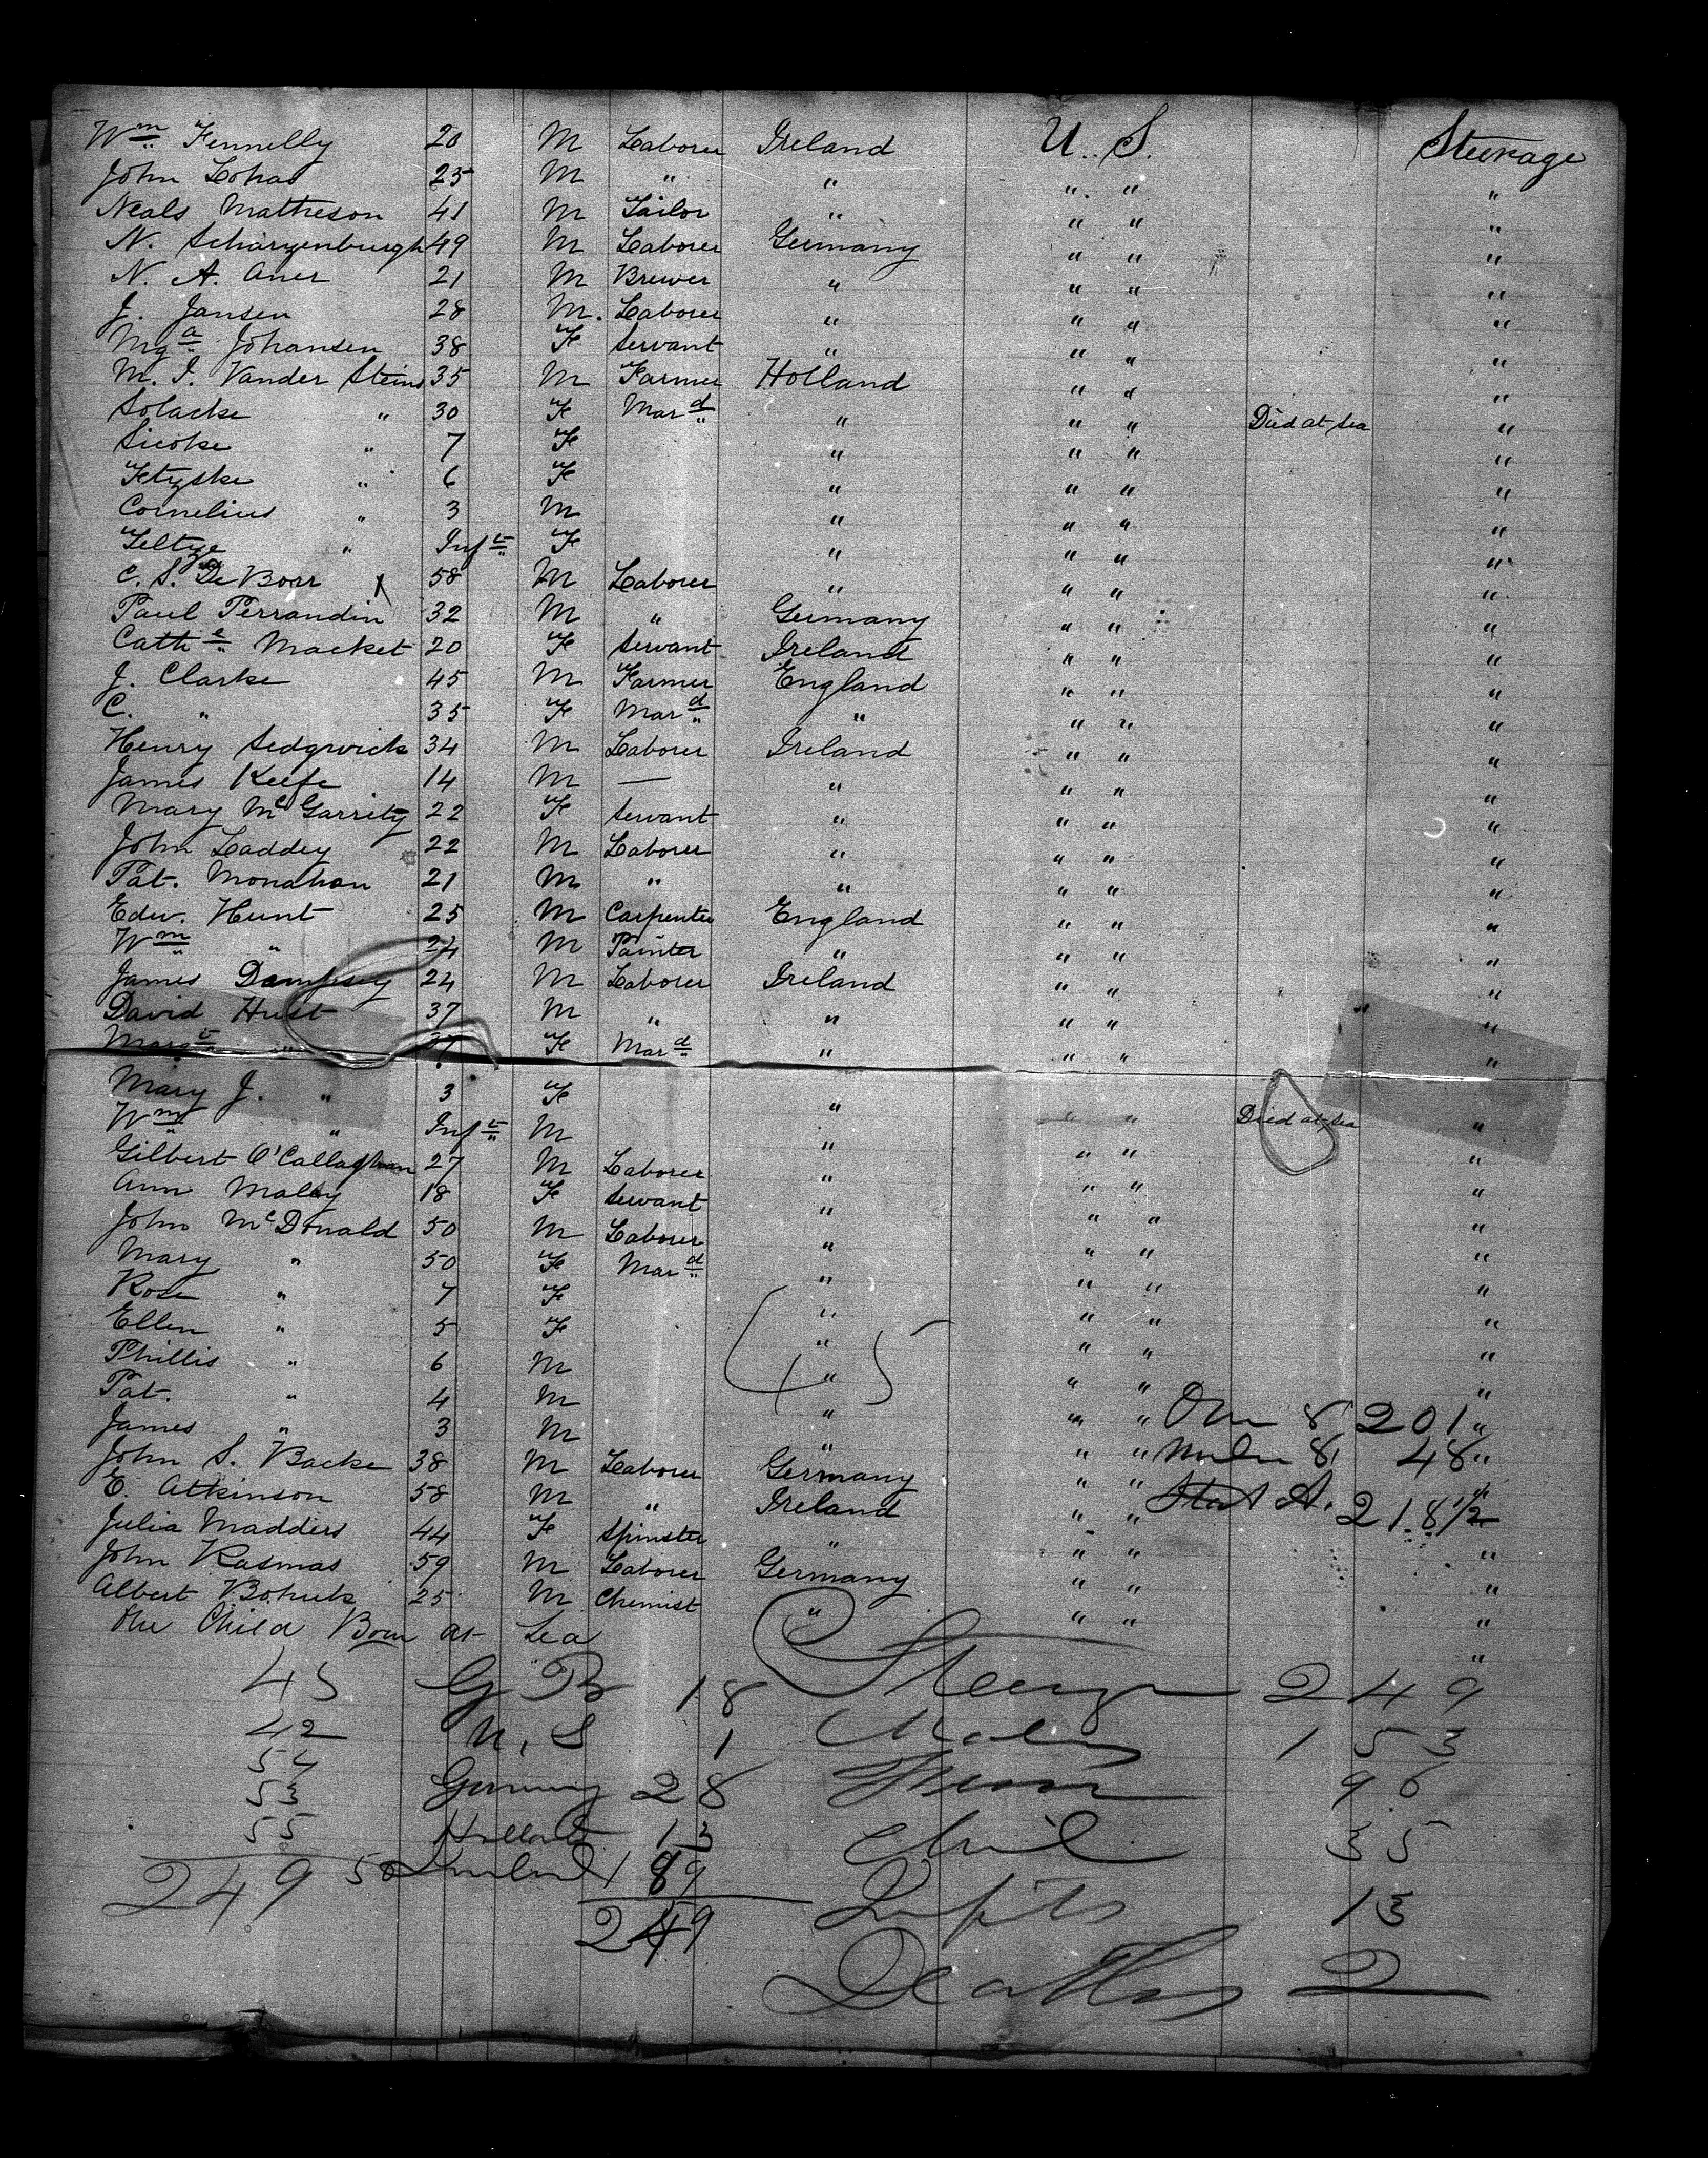 Wm Fennelly 20 M Laborer Ireland U. S. Steerage
John Lohas 25 M " " " " "
Neals Matheson 41 M Tailor " " " "
N. Scharzenburgh 49 M Laborer Germany " " "
N. A. Aner 21 M Brewer " " " "
J. Jansen 28 M. Laborer " " " "
Mga Johansen 38 F Servant " " " "
M. I. Vander Steins 35 M Farmer Holland " " "
Solacke " 30 F Mard " " " Died at Sea "
Sicoke " 7 F " " " "
Fetyske " 6 F " " " "
Cornelius " 3 M " " " "
Teltze " Inft F " " " "
C. S. De Boer 58 M Laborer " " " "
Paul Perrandin 32 M " Germany " " "
Cathe Macket 20 F Servant Ireland " " "
J. Clarke 45 M Farmer England " " "
C. " 35 F Mard " " " "
Henry Sedgwick 34 M Laborer Ireland " " "
James Keefe 14 M — " " " "
Mary McGarrity 22 F Servant " " " "
John Laddey 22 M Laborer " " " "
Pat. Monahan 21 M " " " " "
Edw. Hunt 25 M Carpenter England " " "
Wm " 24 M Painter " " " "
James Dempsey 24 M Laborer Ireland " " "
David Hust 37 M " " " " "
Margt " F Mard " " " "
Mary J. " 3 F " " " "
Wm " Inft M " " " Died at Sea "
Gilbert O'Callaghan 27 M Laborer " " " "
Ann Maloy 18 F Servant " " " "
John McDonald 50 M Laborer " " " "
Mary " 50 F Mard " " " "
Rose " 7 F " " " "
Ellen " 5 F " " " "
Phillis " 6 M " " " "
Pat. " 4 M " " " "
James " 3 M " " " "
John S. Backe 38 M Laborer Germany " " "
E. Atkinson 58 M " Ireland " " "
Julia Madders 44 F Spinster " " " "
John Rasmas 59 M Laborer Germany " " "
Albert 25 M Chemist " " " "
One Child Born at Sea "
45
Over 8 201
Under 8 48
Stat A. 218 1/2
45 G B 18 Steerage 249
42 U. S 1 Males 153
54 Germany 28 96
53 Holland 13 Chil 35
55 Ireland 189 Infts 13
249 249
Deaths 2